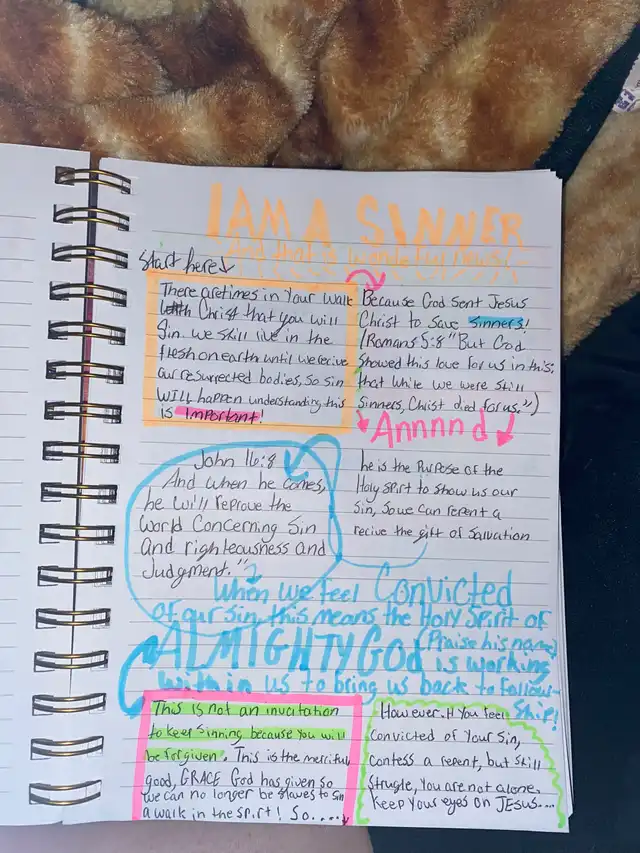 I AM A SINNER
And that is
Start here
There are times in your walk
with Christ that you will
Sin. we still live in the
flesh on earth until we recive
our resurrected bodies, so sin
WILL happen understanding this
is important!
Because God sent Jesus
Christ to save sinners!
(Romans 5:8 "But God
showed this love for us in this;
that while we were still
sinners, Christ died for us.")
Annnnd
John 16:8
And when he comes,
he will reprove the
world concerning Sin
and righteousness and
Judgment."
he is the Purpose of the
Holy Spirt to show us our
Sin, so we can repent a
recive the gift of Salvation
When we feel Convicted
of our sin, this means the Holy Spirit of
ALMIGHTY GOD (Praise his name)
is working
within us to bring us back to follow-
ship!
This is not an invitation
to keep sinning because you will
be forgiven. This is the merciful
good, GRACE God has given so
we can no longer be slaves to sin
a walk in the spirt! So.....
However, if You feel
Convicted of Your Sin,
Confess a repent, but still
Strugle, You are not alone.
Keep Your eyes on JESUS....